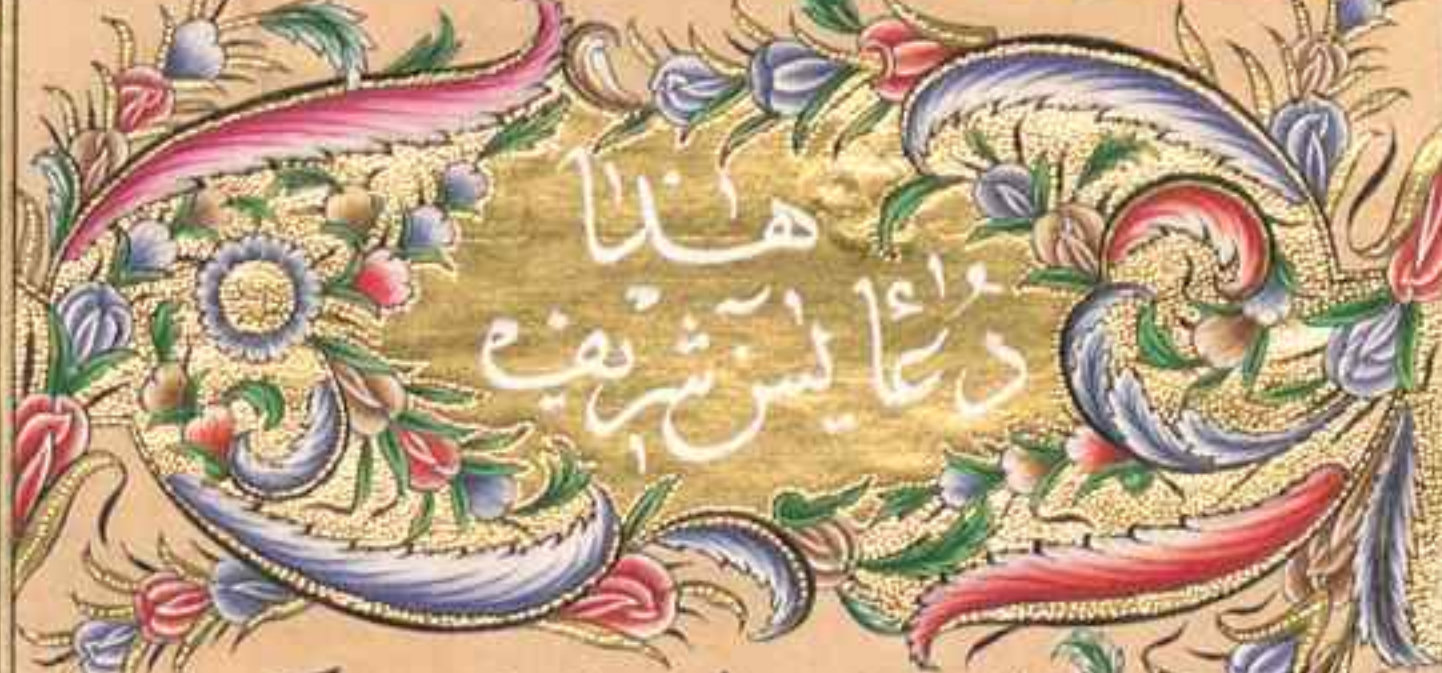 هذا
دُعٰا يٰسۤ شريف